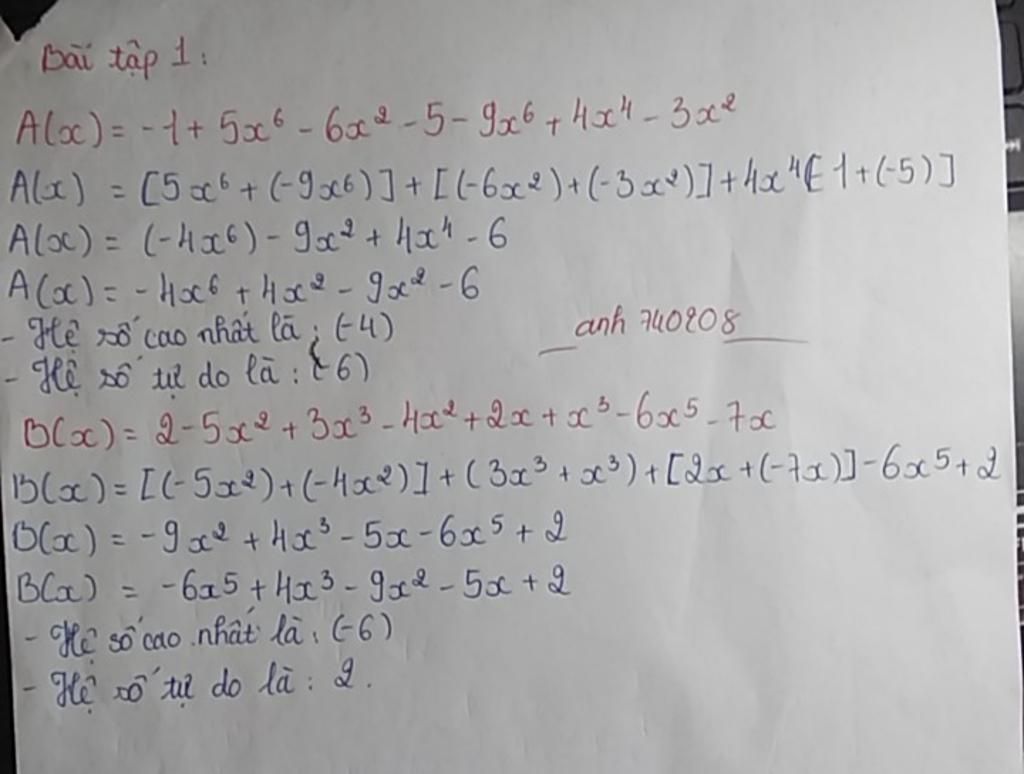 Bài tập 1:
A(x) = -1 + 5x⁶ - 6x² - 5 - 9x⁶ + 4x⁴ - 3x²
A(x) = [5x⁶ + (-9x⁶)] + [(-6x²) + (-3x²)] + 4x⁴[-1 + (-5)]
A(x) = (-4x⁶) - 9x² + 4x⁴ - 6
A(x) = -4x⁶ + 4x² - 9x² - 6
- Hệ số cao nhất là : (-4)
anh 740208
- Hệ số tự do là : (-6)
B(x) = 2 - 5x² + 3x³ - 4x² + 2x + x³ - 6x⁵ - 7x
B(x) = [(-5x²) + (-4x²)] + (3x³ + x³) + [2x + (-7x)] - 6x⁵ + 2
B(x) = -9x² + 4x³ - 5x - 6x⁵ + 2
B(x) = -6x⁵ + 4x³ - 9x² - 5x + 2
- Hệ số cao nhất là : (-6)
- Hệ số tự do là : 2.